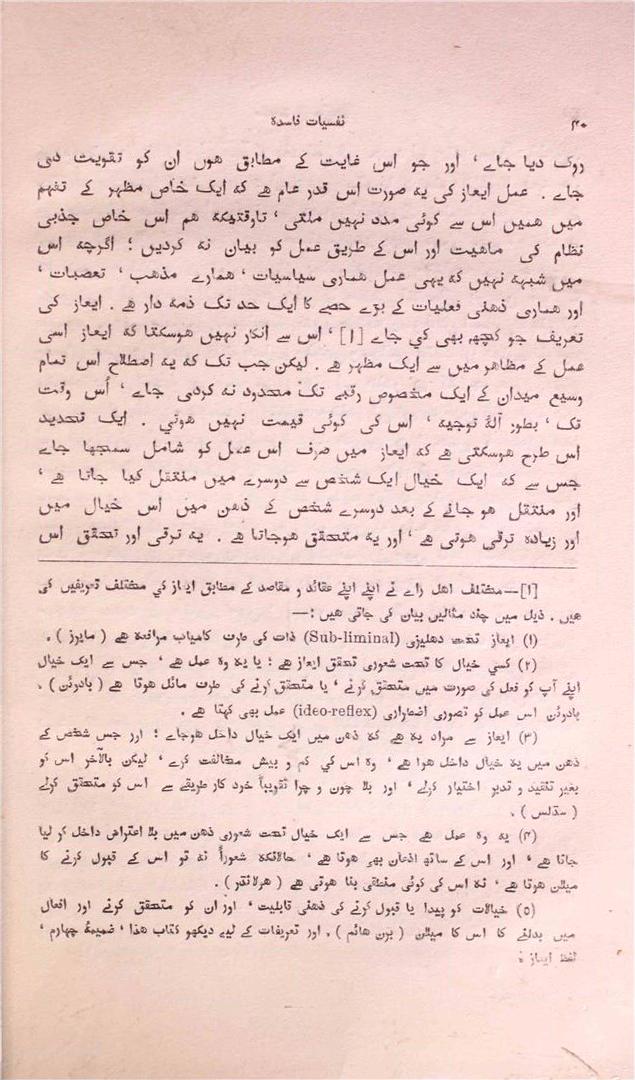 نفسیات فاسدہ
۴۰
روک دیا جاے ، اور جو اس غایت کے مطابق ہوں ان کو تقویت دی
جاے . عمل ایعاز کی یہ صورت اس قدر عام ہے کہ ایک خاص مظہر کے تفہم
میں ہمیں اس سے کوئی مدد نہیں ملتی ، تاوقتیکہ ہم اس خاص جذبی
نظام کی ماہیت اور اس کے طریق عمل کو بیان نہ کردیں ؛ اگرچہ اس
میں شبہہ نہیں کہ یہی عمل ہماری سیاسیات ، ہمارے مذہب ، تعصبات ،
اور ہماری ذہنی فعلیات کے بڑے حصے کا ایک حد تک ذمہ دار ہے . ایعاز کی
تعریف جو کچھہ بھی کي جاے [۱] ، اس سے انکار نہیں ہوسکتا کہ ایعاز اسی
عمل کے مظاہر میں سے ایک مظہر ہے . لیکن جب تک کہ یہ اصطلاح اس تمام
وسیع میدان کے ایک مخصوص رقبے تک محدود نہ کردی جاے ، اُس وقت
تک ، بطور آلۂ توجیہ ، اس کی کوئی قیمت نہیں ہوتي . ایک تحدید
اس طرح ہوسکتی ہے کہ ایعاز میں صرف اس عمل کو شامل سمجھا جاے
جس سے کہ ایک خیال ایک شخص سے دوسرے میں منتقل کیا جاتا ہے ،
اور منتقل ہو جانے کے بعد دوسرے شخص کے ذہن میں اس خیال میں
اور زیادہ ترقی ہوتی ہے ، اور یہ متحقق ہوجاتا ہے . یہ ترقی اور تحقق اس
[۱] — مختلف اہل راے نے اپنے اپنے عقائد و مقاصد کے مطابق ایعاز کي مختلف تعریفیں کی
ہیں . ذیل میں چند مثالیں بیان کی جاتی ہیں :—
(۱) ایعاز تحت دہلیزی (Sub-liminal) ذات کی طرف کامیاب مرافعہ ہے ( مایرز ) .
(۲) کسی خیال کا تحت شعوری تحقق ایعاز ہے ؛ یا یہ وہ عمل ہے ، جس سے ایک خیال
اپنے آپ کو فعل کی صورت میں متحقق کرنے ، یا متحقق کرنے کی طرف مائل ہوتا ہے ( بادوئن ) .
بادوئن اس عمل کو تصوری اضطراری (ideo-reflex) عمل بھی کہتا ہے .
(۳) ایعاز سے مراد یہ ہے کہ ذہن میں ایک خیال داخل ہوجاے ؛ اور جس شخص کے
ذہن میں یہ خیال داخل ہوا ہے ، وہ اس کي کم و بیش مخالفت کرے ، لیکن بالآخر اس کو
بغیر تنقید و تدبر اختیار کرلے ، اور بلا چون و چرا تقریباً خود کار طریقے سے اس کو متحقق کرلے
( سڈلس ) .
(۴) یہ وہ عمل ہے جس سے ایک خیال تحت شعوری ذہن میں بلا اعتراض داخل کر لیا
جاتا ہے ، اور اس کے ساتھ اذعان بھی ہوتا ہے ، حالانکہ شعوراً نہ تو اس کے قبول کرنے کا
میلان ہوتا ہے ، نہ اس کی کوئی منطقی بنا ہوتی ہے ( ہرلانڈر ) .
(۵) خیالات کو پیدا یا قبول کرنے کی ذہنی قابلیت ، اور ان کو متحقق کرنے اور افعال
میں بدلنے کا اس کا میلان ( برن ہائم ) . اور تعریفات کے لیے دیکھو کتاب ہذا ، ضمیمۂ چہارم ،
لفظ ایعاز .